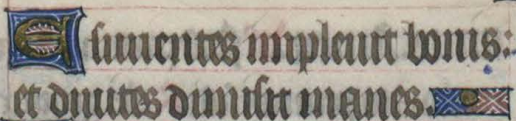 Esurientes impleuit bonis:
et diuites dimisit inanes.